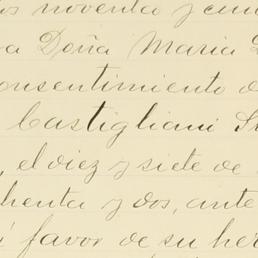 noventa y cin
Doña Maria D
onsentimiento d
Castigliani
, el diez y siete de
henta y dos, ante
favor de su her